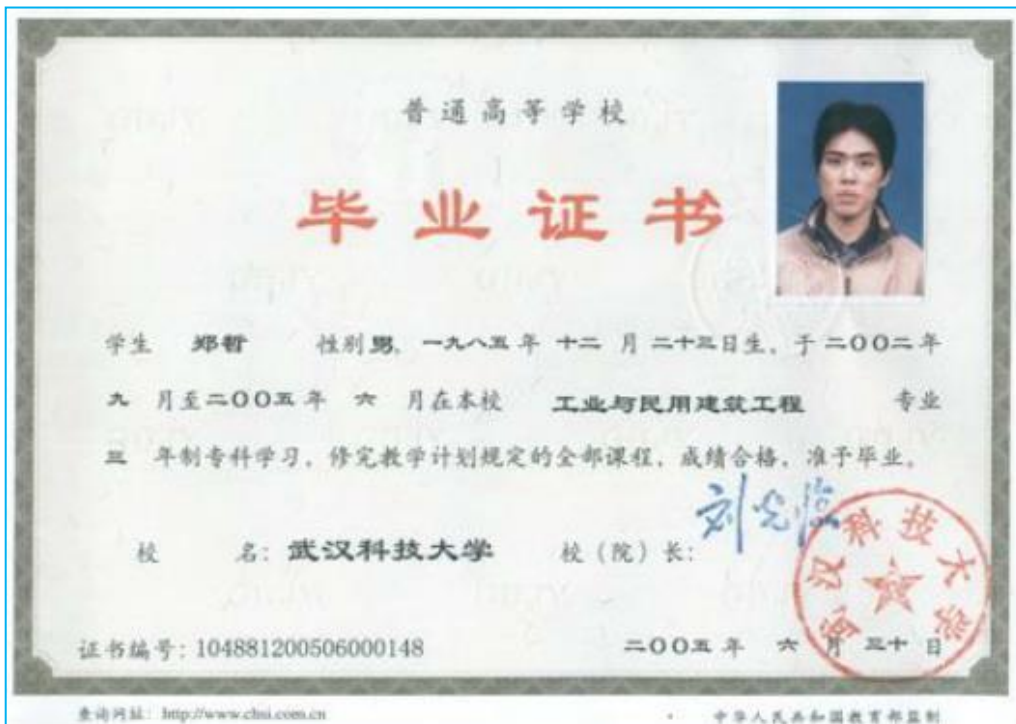 普通高等学校
毕业证书
学生 郑哲 性别男，一九八五年 十二 月 二十三日生，于二〇〇二年
九 月至二〇〇五年 六 月在本校 工业与民用建筑工程 专业
三 年制专科学习，修完教学计划规定的全部课程，成绩合格，准予毕业。
校 名：武汉科技大学 校（院）长：刘光临
武汉科技大学
证书编号：104881200506000148 二〇〇五年 六 月 三十日
查询网址：http://www.chsi.com.cn 中华人民共和国教育部监制